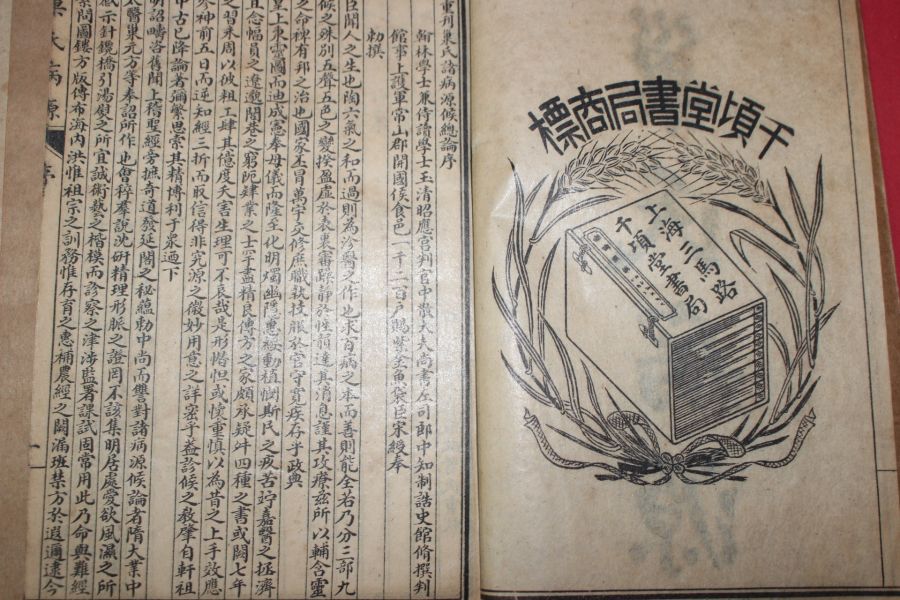 千頃堂書局商標
上海三馬路
千頃堂書局
重刊巢氏諸病源候總論序
翰林學士兼侍讀學士玉清昭應宮判官中散大夫尚書左司郎中知制誥史館脩撰判
館事上護軍常山郡開國侯食邑一千二百戶賜紫金魚袋臣宋綬奉
勅撰
臣聞人之生也陶六氣之和而過則為沴醫之作也求百病之本而善則能全若乃分三部九
候之殊別五聲五色之變揆盈虛於表裏審躁靜於性韻達其消息謹其攻療茲所以輔含靈
之命稗有邦之治也國家丕冒萬宇交修庶職執技服於官守寬疾存乎政典
皇上秉靈圖而迪成憲奉母儀而隆至化明燭幽隱惠綏動植憫斯民之疾苦竚嘉醫之拯濟
且念幅員之遼邈閭巷之窮阨肄業之士罕盡精良傳方之家頗承疑舛四種之書或闕七年
之習未周以彼粗工肆其億度夭害生理可不哀哉是形惻怛或懷重慎以為昔之上手效應
參神前五日而逆知經三折而取信得非究源之微妙用意之詳密乎蓋診候之教肇自軒祖
中古已降論著彌繁思索其精博利于眾迺下
明詔疇咨舊聞上稽聖經旁摭奇道發延閣之秘蘊勅中尚而讐對諸病源候論者隋大業中
太醫巢元方等奉詔所作也會稡羣說沈研精理形脈之證罔不該集明居處愛欲風濕之所
感示針鑱橋引湯熨之所宜誠術藝之楷模而診察之津涉監署課試固常用此乃命與難經
素問圖鏤方版傳布海內洪惟祖宗之訓務惟存育之惠補農經之闕漏班禁方於遐邇逮今
巢氏病源 序
一